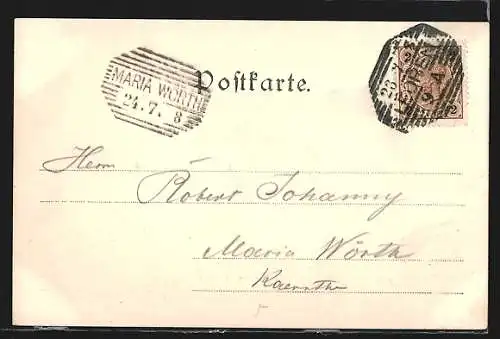 MARIA WÖRTH
24. 7. 8
Postkarte.
Herrn
Robert Johanny
Maria Wörth
Kaernthn